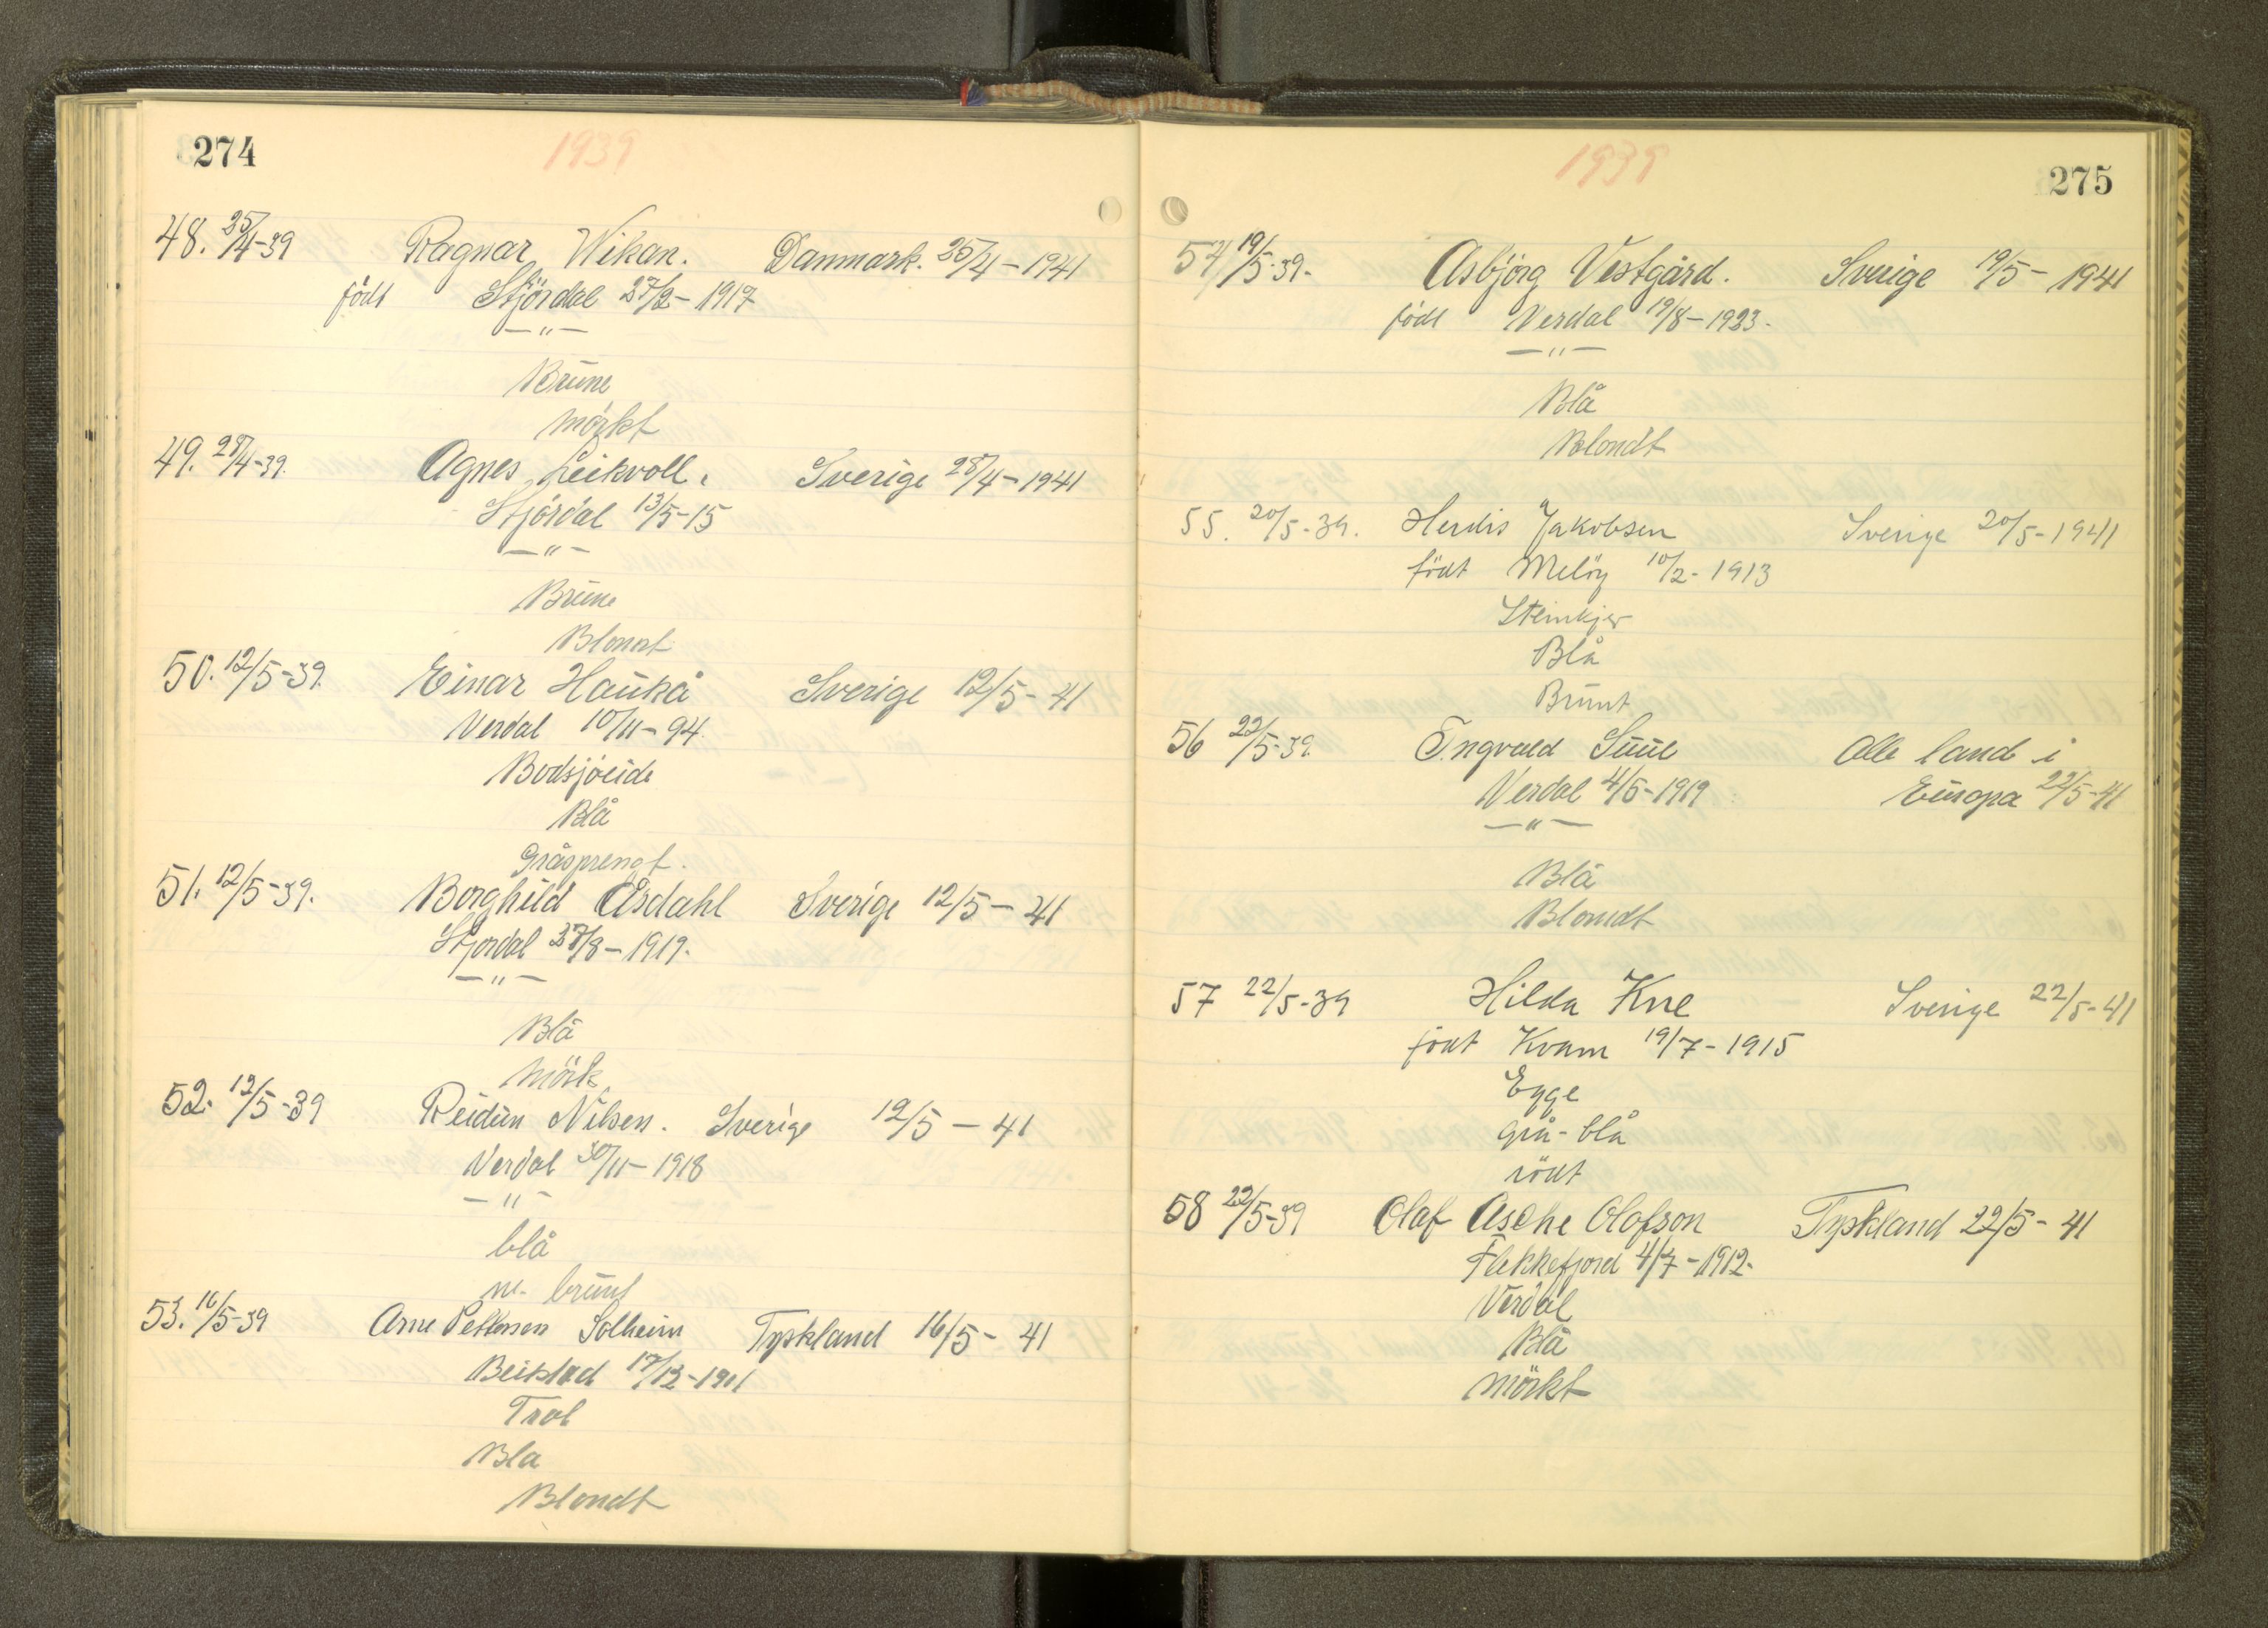 274
1939
48. 25/4-39 Ragnar Wikan. Danmark. 25/4-1941
födt Stjördal 27/2-1917
-"-
Brune
mörkt
49. 28/4-39. Agnes Leikvoll. Sverige 28/4-1941
Stjördal 13/5-15
-"-
Brune
Blondt
50. 12/5-39. Einar Haukå Sverige 12/5-41
Verdal 10/11-94.
Blå
Gråsprengt.
51. 12/5-39. Borghild Åsdahl Sverige 12/5-41
Stjordal 27/8-1919.
-"-
Blå
mörk
52. 12/5-39 Reidun Nilsen. Sverige 12/5-41
Verdal 30/11-1918
-"-
blå
m. brunt
53. 16/5-39 Arne Pettersen Solheim Tyskland 16/5-41
Beitstad 17/12-1901
Blå
Blondt
1939
275
54 19/5-39. Asbjörg Vestgård. Sverige 19/5-1941
födt Verdal 19/8-1923.
-"-
Blå
Blondt
55. 20/5-39. Herdis Jakobsen Sverige 20/5-1941
födt Melöy 10/2-1913
Steinkjer
Blå
Brunt
56 22/5-39. Ingvald Suul Alle land i
Verdal 4/6-1919 Europa 22/5-41
-"-
Blå
Blondt
57 22/5-39 Hilda Kne Sverige 22/5-41
födt Kvam 19/7-1915
Egge
grå-blå
rödt
58 22/5-39 Olaf Asche Olofson Tyskland 22/5-41
Flekkefjord 4/7-1912.
Verdal
Blå
mörkt